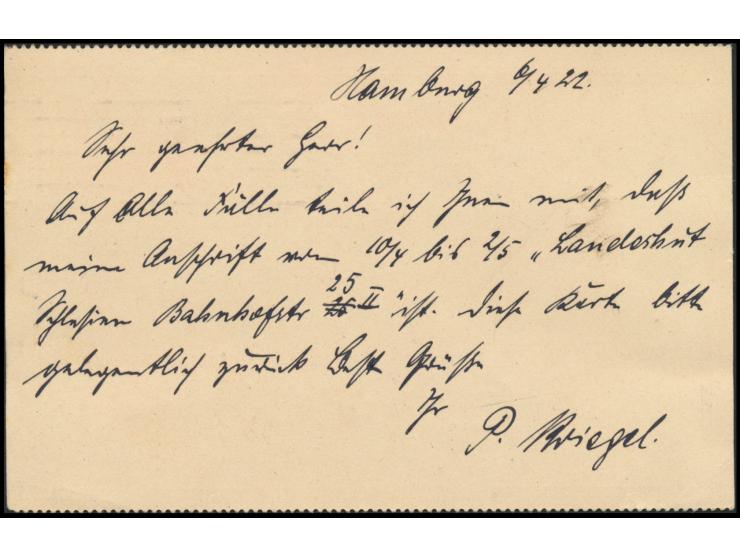 Hamburg 6/4 22.
Sehr geehrter Herr!
Auf alle Fälle teile ich Ihnen mit, daß
meine Anschrift vom 10/4 bis 2/5 „Landeshut
Schlesien Bahnhofstr 25 II" ist. Diese Karte bitte
gelegentlich zurück Beste Grüße
Ihr
P. Kriegel.